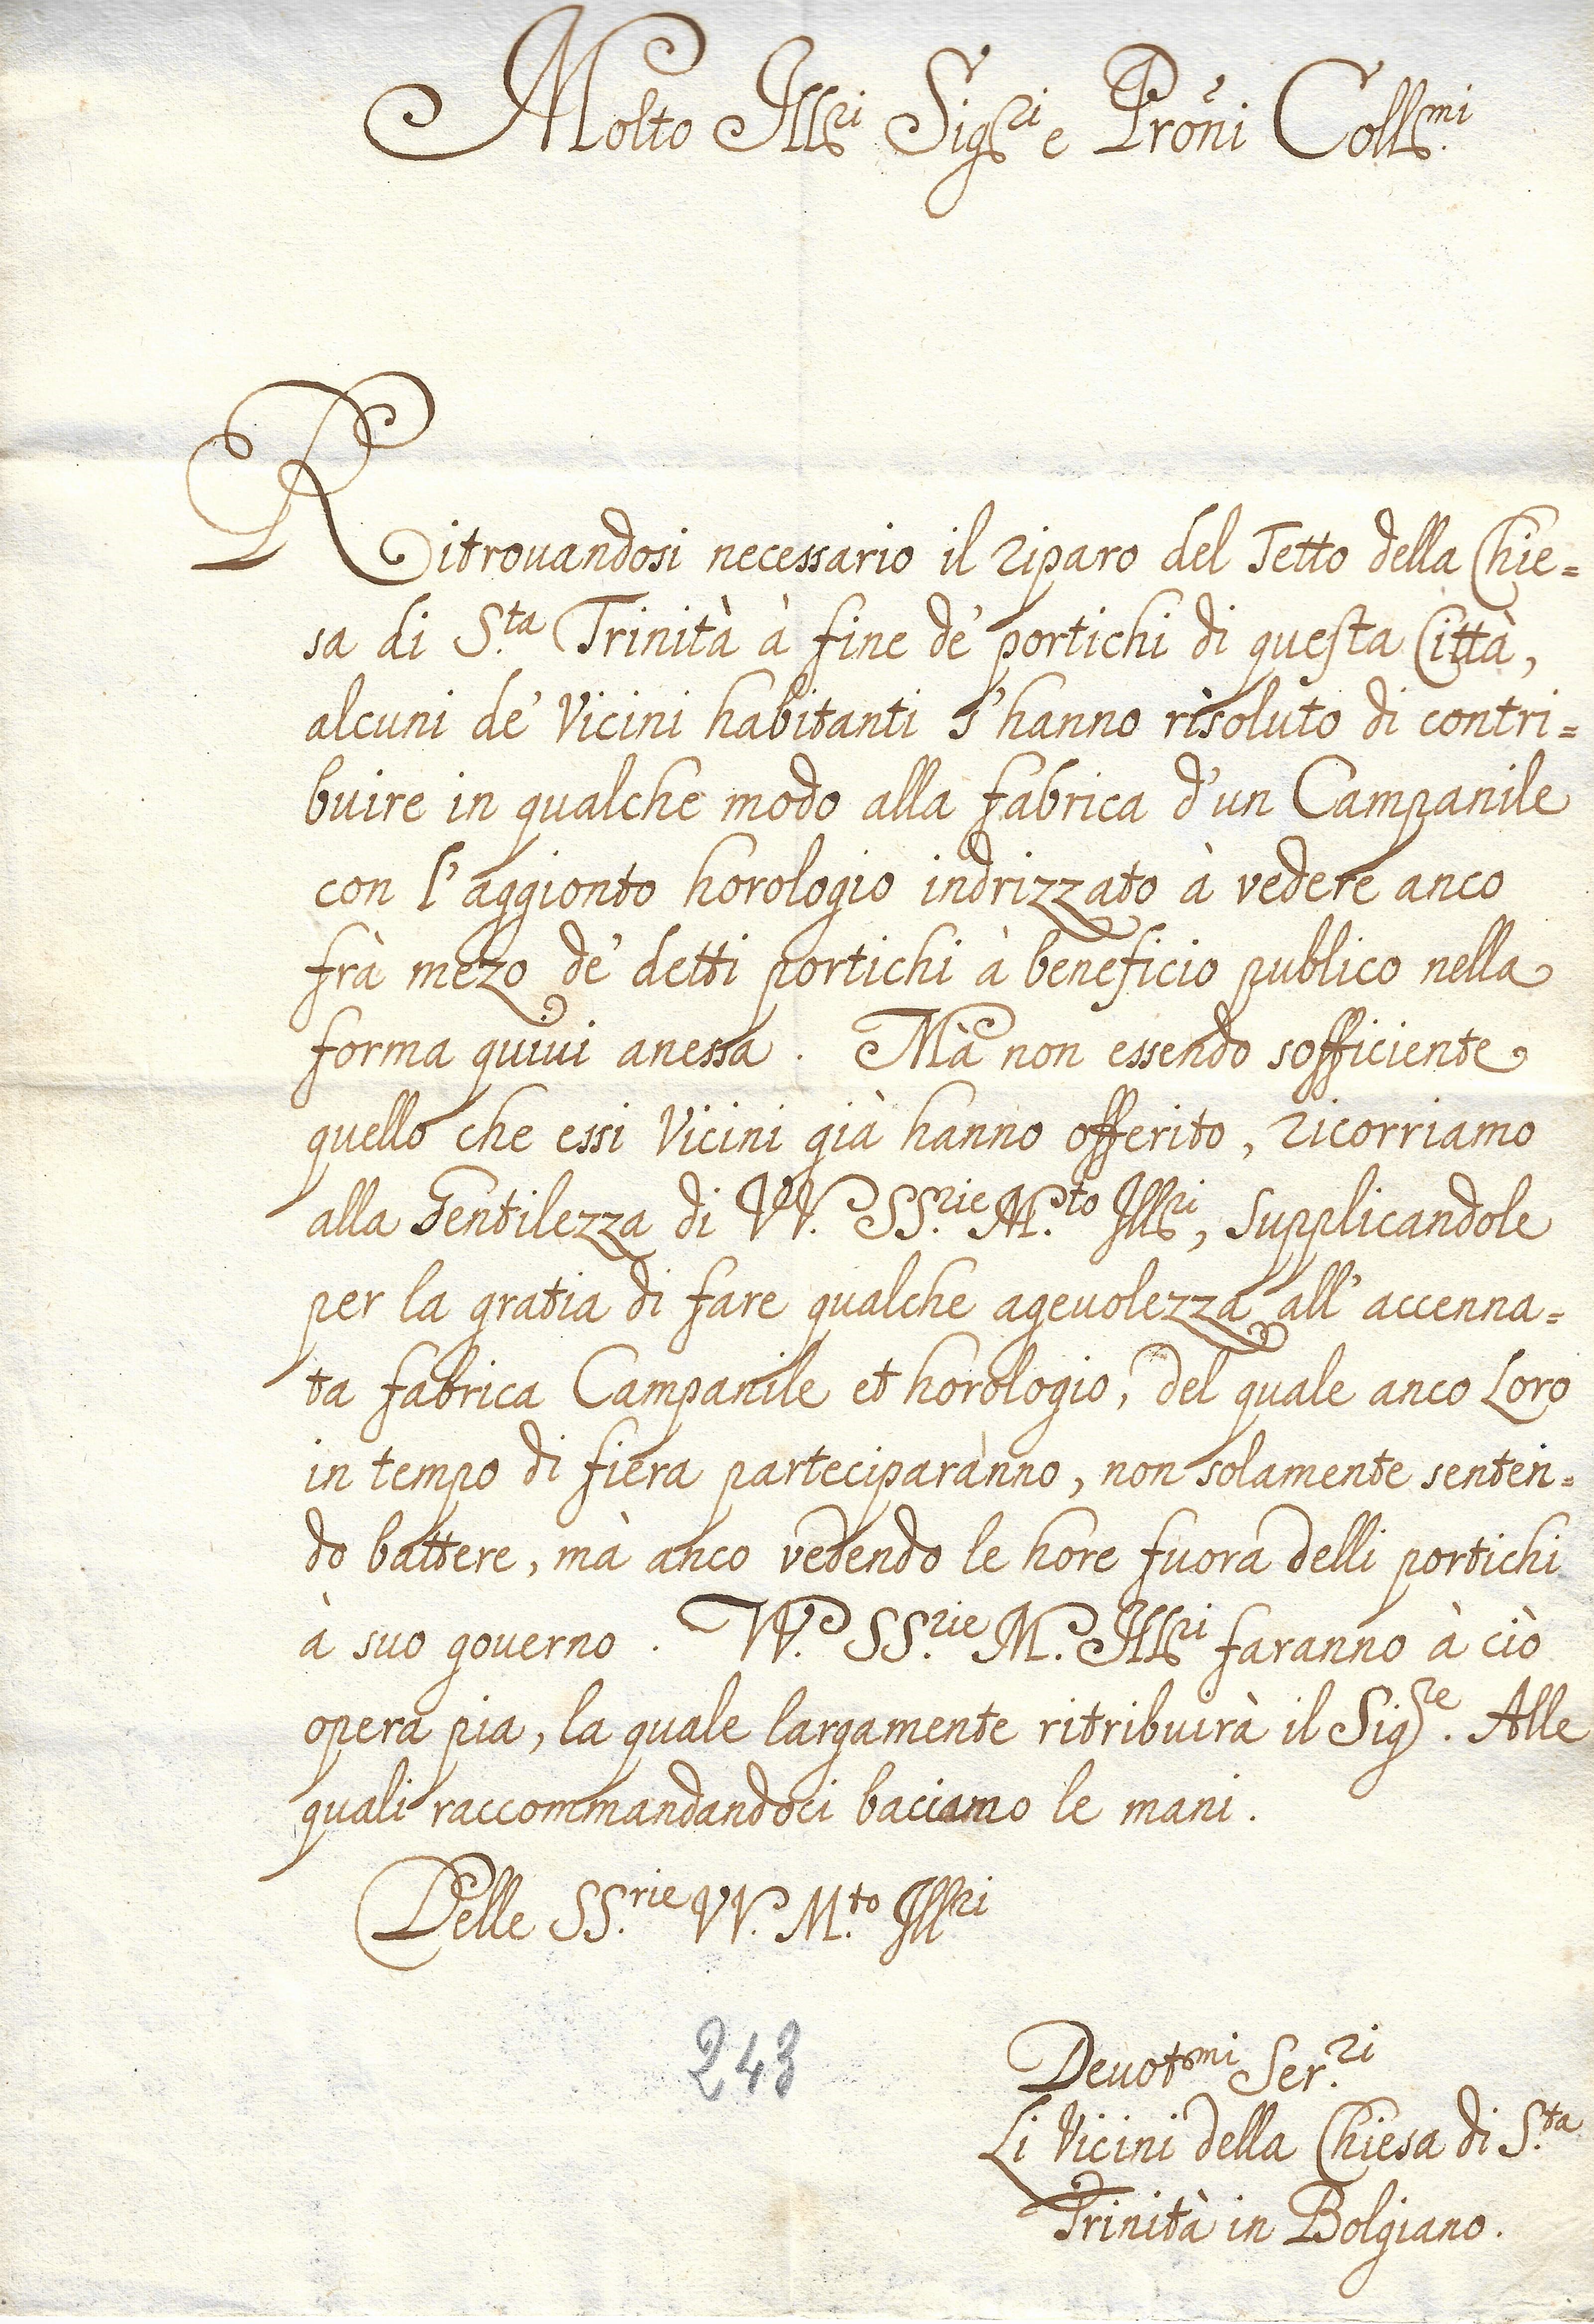 Molto Ill.ri Sig.ri e Proñi Coll.mi
Ritrouandosi necessario il riparo del Tetto della Chie=
sa di S.ta Trinità à fine de' portichi di questa Città,
alcuni de' Vicini habitanti s'hanno risoluto di contri=
buire in qualche modo alla fabrica d'un Campanile
con l'aggionto horologio indrizzato à vedere anco
frà mezo de' detti portichi à beneficio publico nella
forma quiui anessa. Mà non essendo sofficiente
quello che essi Vicini già hanno offerito, ricorriamo
alla Gentilezza di VV. SS.rie M.to Ill.ri, supplicandole
per la gratia di fare qualche ageuolezza all'accenna=
ta fabrica Campanile et horologio, del quale anco Loro
in tempo di fiera parteciparanno, non solamente senten=
do battere, mà anco vedendo le hore fuora delli portichi
à suo gouerno. VV. SS.rie M. Ill.ri faranno à ciò
opera pia, la quale largamente ritribuirà il Sig.re. Alle
quali raccommandandoci baciamo le mani.
Delle SS.rie VV. M.to Ill.ri
243
Deuot.mi Ser.ri
Li Vicini della Chiesa di S.ta
Trinità in Bolgiano.